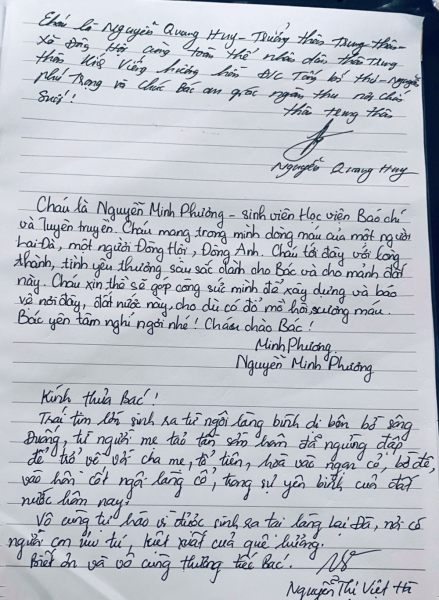 Cháu là Nguyễn Quang Huy - Trưởng thôn Trung thôn -
Xã Đông Hội cùng toàn thể nhân dân thôn Trung
thôn Kính Viếng hương hồn Đ/C Tổng bí thư - Nguyễn
Phú Trọng và chúc Bác an giấc ngàn thu nơi chín
Suối!
thôn trung thôn
Nguyễn Quang Huy
Cháu là Nguyễn Minh Phương - sinh viên Học viện Báo chí
và Tuyên truyền. Cháu mang trong mình dòng máu của một người
Lại Đà, một người Đông Hội, Đông Anh. Cháu tới đây với lòng
thành, tình yêu thương, sâu sắc dành cho Bác và cho mảnh đất
này. Cháu xin thề sẽ góp công sức mình để xây dựng và bảo
vệ nơi đây, đất nước này, cho dù có đổ mồ hôi, xương máu.
Bác yên tâm nghỉ ngơi nhé! Cháu chào Bác!
Minh Phương
Nguyễn Minh Phương
Kính thưa Bác!
Trái tim lớn sinh ra từ ngôi làng bình dị bên bờ sông
Đuống, từ người mẹ tảo tần sớm hôm đã ngừng đập
để trở về với cha mẹ, tổ tiên, hoà vào ngọn cỏ, bờ đê,
vào hồn cốt ngôi làng cổ, trong sự yên bình của đất
nước hôm nay!
Vô cùng tự hào vì được sinh ra tại làng Lại Đà, nơi có
người con ưu tú, kiệt xuất của quê hương.
Biết ơn và vô cùng thương tiếc Bác.
Nguyễn Thị Việt Hà